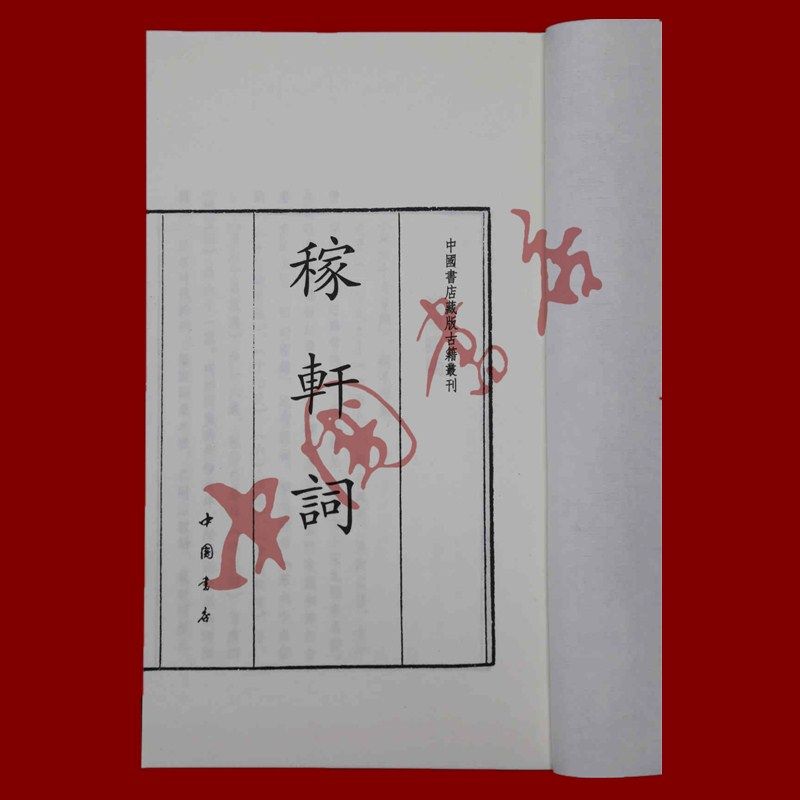 中國書店藏版古籍叢刊
稼軒詞
中国书店